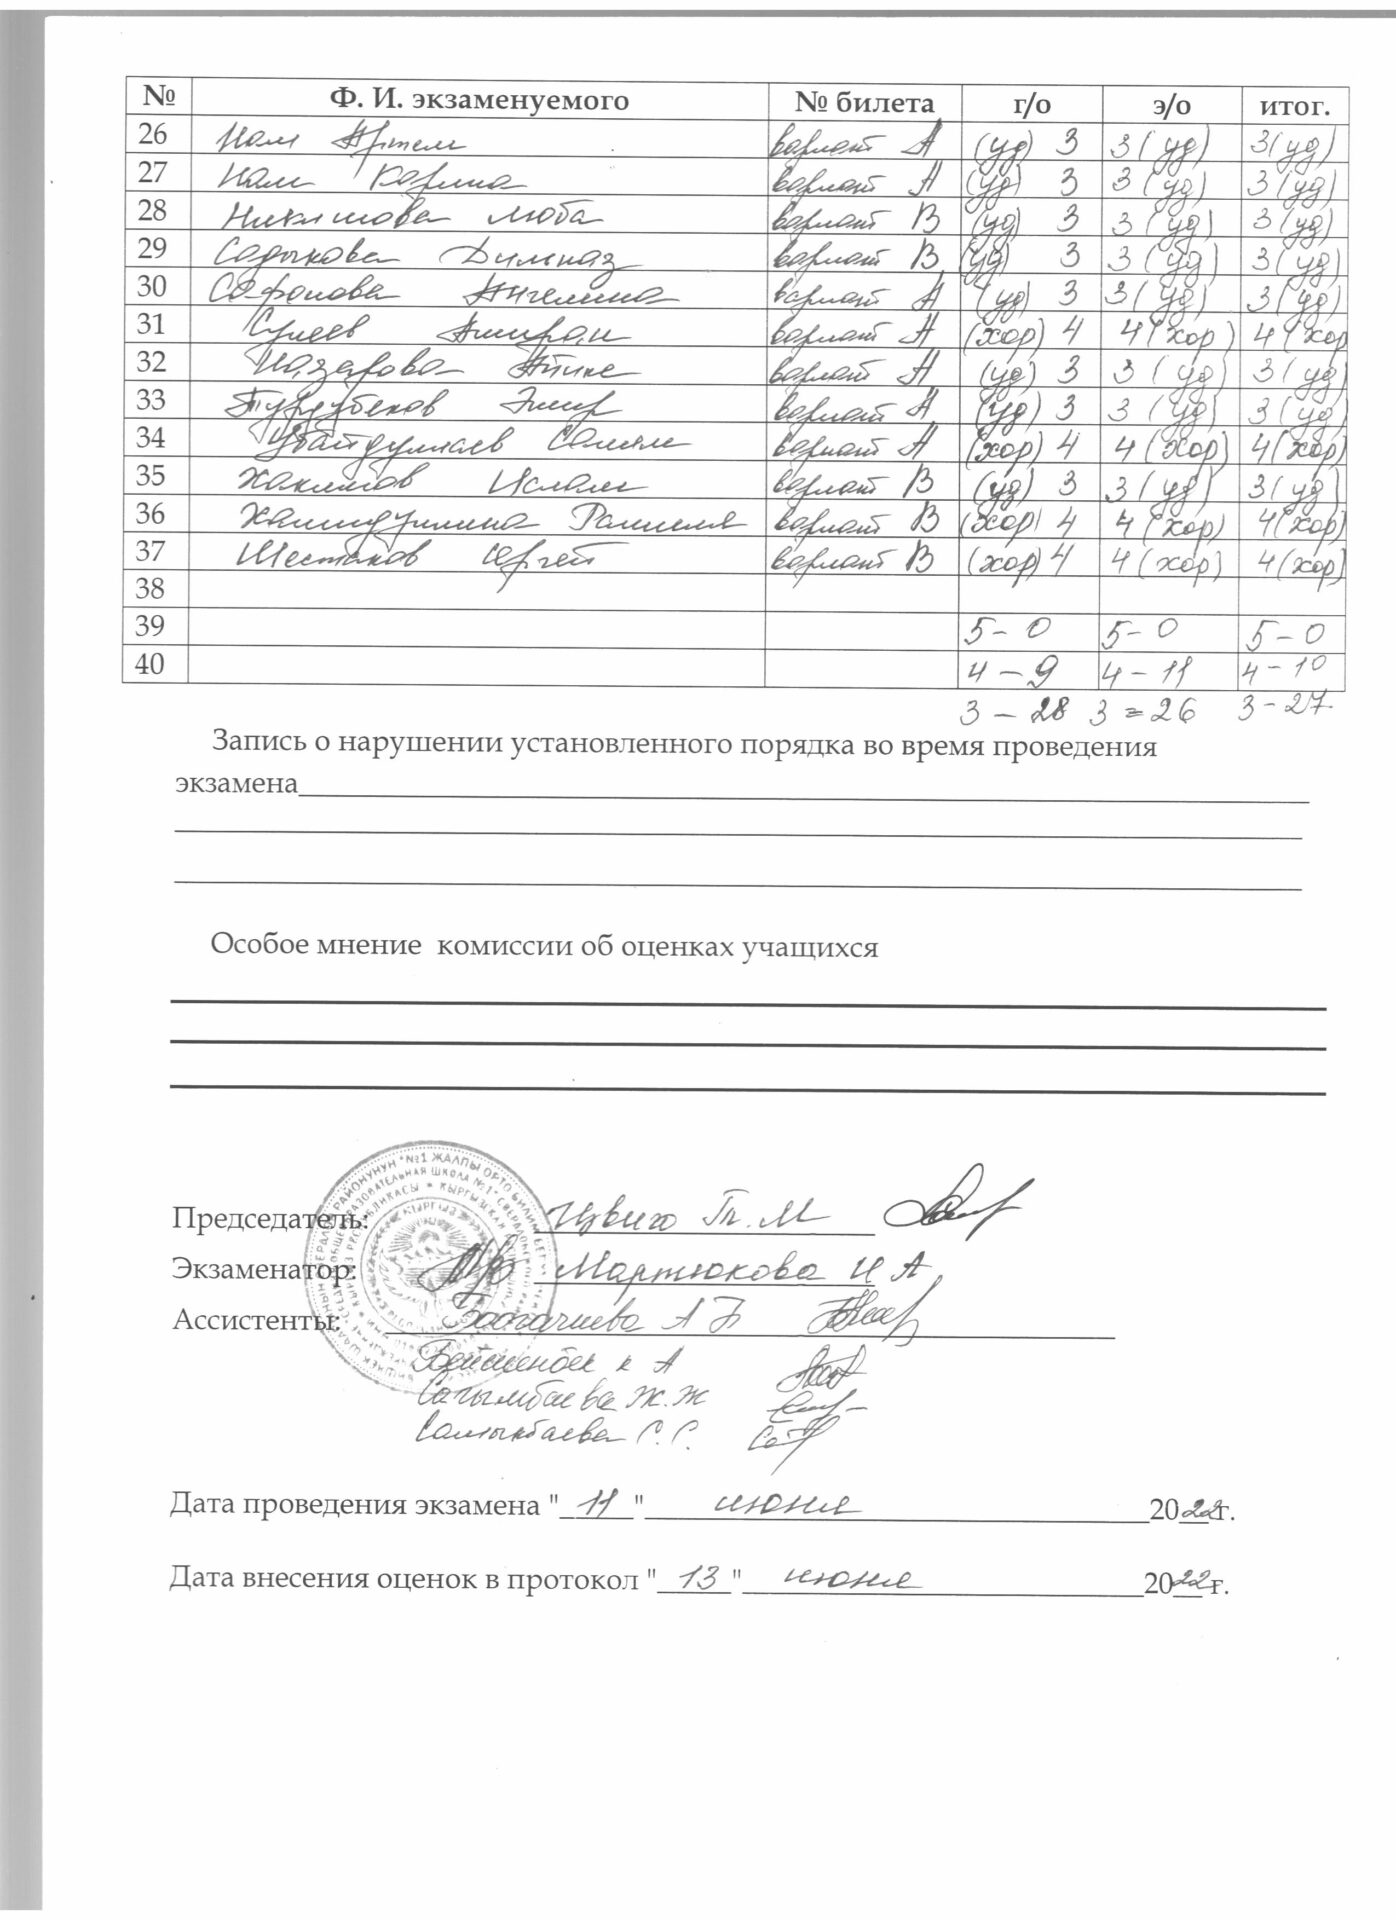 № Ф. И. экзаменуемого № билета г/о э/о итог.
26 Нам Артем вариант А (уд) 3 3 (уд) 3 (уд)
27 Нам Карина вариант А (уд) 3 3 (уд) 3 (уд)
28 Никишова Люба вариант В (уд) 3 3 (уд) 3 (уд)
29 Садыкова Дилназ вариант В (уд) 3 3 (уд) 3 (уд)
30 Сафонова Ангелина вариант А (уд) 3 3 (уд) 3 (уд)
31 Сулеев Амиран вариант А (хор) 4 4 (хор) 4 (хор
32 Назарова вариант А (уд) 3 3 (уд) 3 (уд)
33 Турдубеков Эмир вариант А (уд) 3 3 (уд) 3 (уд)
34 Убайдуллаев Салим вариант А (хор) 4 4 (хор) 4 (хор)
35 Хакимов Ислам вариант В (уд) 3 3 (уд) 3 (уд)
36 Хамидуллина вариант В (хор) 4 4 (хор) 4 (хор)
37 Шестаков Сергей вариант В (хор) 4 4 (хор) 4 (хор)
38
39 5 - 0 5 - 0 5 - 0
40 4 - 9 4 - 11 4 - 10
3 - 28 3 = 26 3 - 27
Запись о нарушении установленного порядка во время проведения
экзамена
Особое мнение комиссии об оценках учащихся
Председатель: Цвиго Т. М
Экзаменатор: Мартюкова И А
Ассистенты: Богачиева А Б
Бейшенбек к А
Сагымбаева Ж. Ж
Салыкбаева С. С.
Дата проведения экзамена "11" июня 2022г.
Дата внесения оценок в протокол "13" июня 2022г.